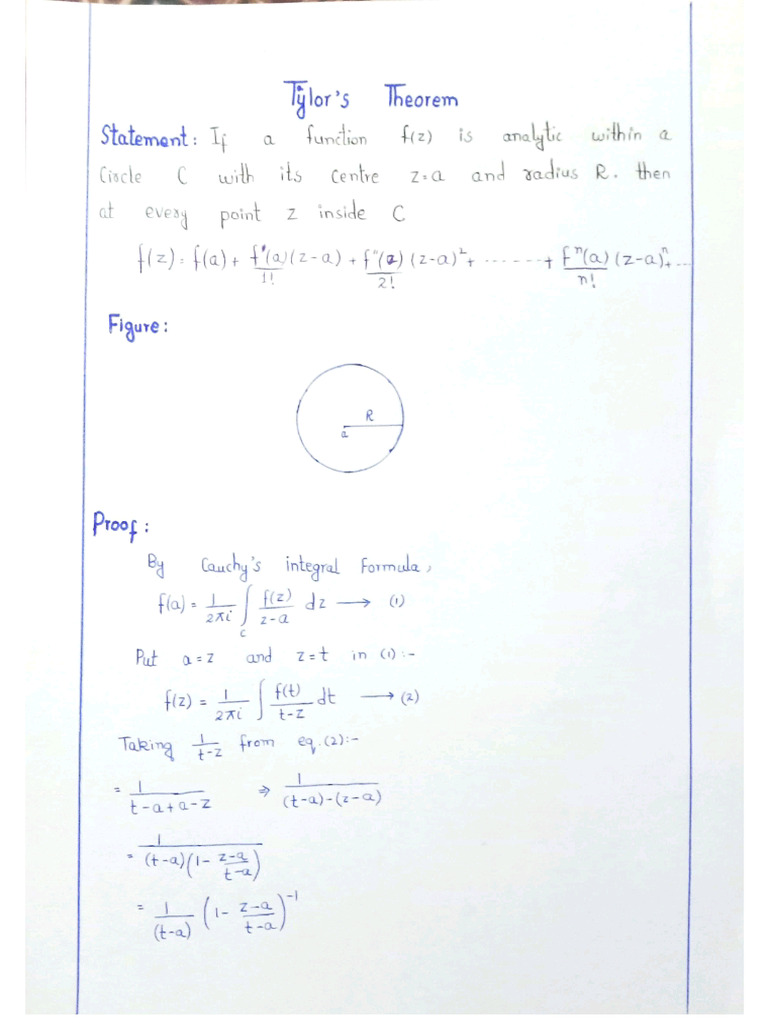 Tylor's Theorem
Statement: If a function f(z) is analytic within a
Circle C with its centre z=a and radius R. then
at every point z inside C
f(z) = f(a) + f'(a)/1! (z-a) + f''(a)/2! (z-a)² + ...... + fⁿ(a)/n! (z-a)ⁿ + ...
Figure:
R
a
Proof:
By Cauchy's integral Formula,
f(a) = 1/2πi ∫_c f(z)/z-a dz ⟶ (1)
Put a=z and z=t in (1):-
f(z) = 1/2πi ∫ f(t)/t-z dt ⟶ (2)
Taking 1/t-z from eq.(2):-
= 1/t-a+a-z ⇒ 1/(t-a)-(z-a)
= 1/(t-a)(1 - z-a/t-a)
= 1/(t-a) (1 - z-a/t-a)⁻¹